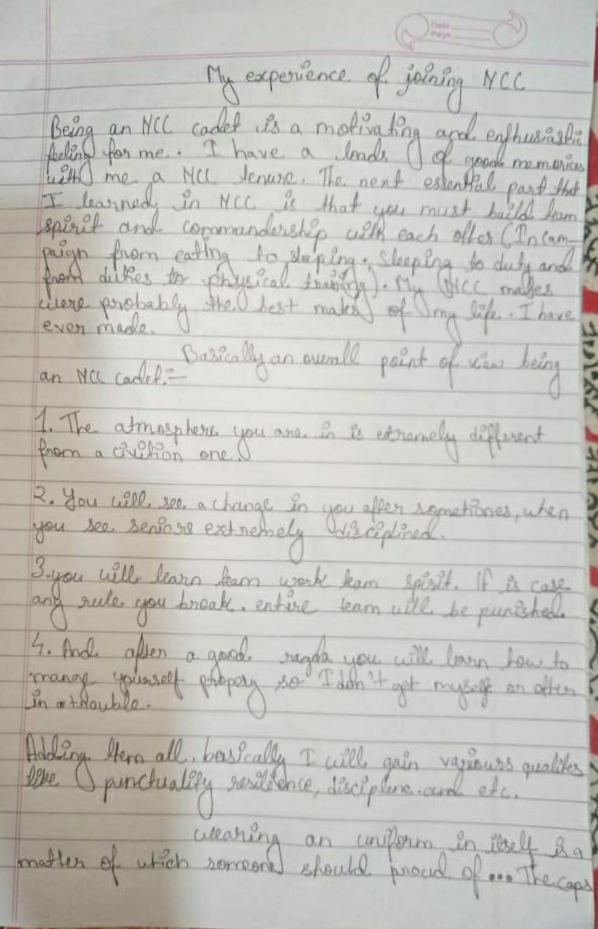 Date
Page
My experience of joining NCC
Being an NCC cadet is a motivating and enthusiastic
feeling for me. I have a loads of good memories
with me a NCC tenure. The next essential part that
I learned in NCC is that you must build team
spirit and commandership with each other (In cam-
paign from eating to sleping. sleeping to duty and
from duties to physical training). My NCC mates
were probably the best mates of my life. I have
ever made.
Basically an overall point of view being
an NCC cadet:-
1. The atmosphere you are in is extremely different
from a civilion one.
2. You will see a change in you after sometimes, when
you see seniors extremely disciplined.
3. you will learn team work team spirit. If is case
any rule you break. entire team will be punished.
4. And after a good ragda you will learn how to
mange youself propery so I don't get myself or other
in a trouble.
Adding them all, basically I will gain variours qualites
like punctuality resilience, discipline and etc.
wearing an uniform in itself is a
matter of which someone should proud of... The caps